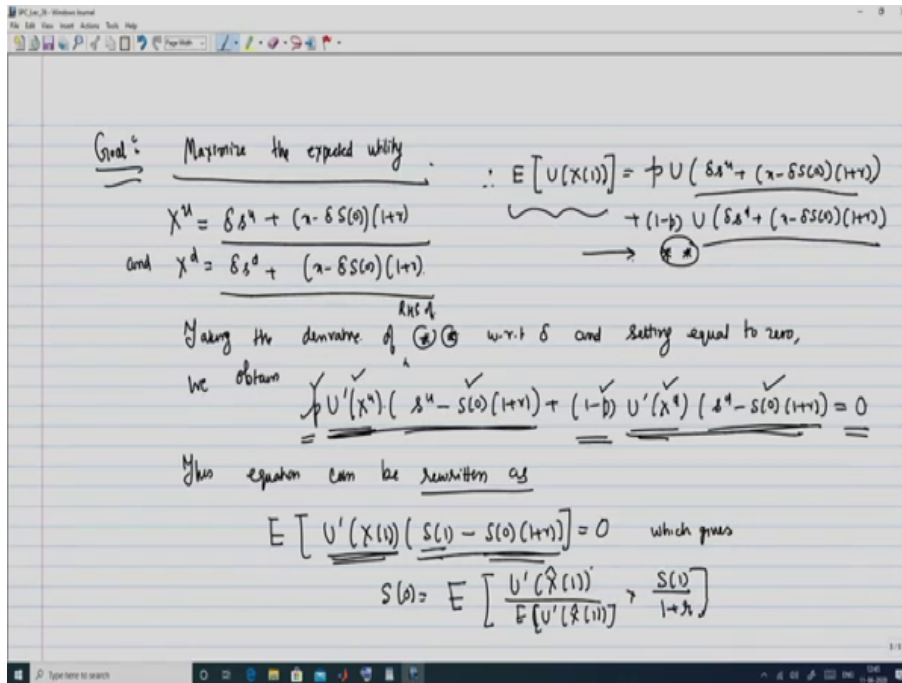 SPC_Lec_26 - Windows Journal
File Edit View Insert Actions Tools Help
Page Width
Goal: Maximize the expected utility.
X^u = δs^u + (x - δS(0))(1+r)
and X^d = δs^d + (x - δS(0))(1+r).
∴ E[U(X(1))] = p U(δs^u + (x - δS(0))(1+r))
+ (1-p) U(δs^d + (x - δS(0))(1+r))
→ (* *)
RHS of
Taking the derivative of (*)(*) w.r.t δ and setting equal to zero,
we obtain
p U'(X^u).(s^u - S(0)(1+r)) + (1-p) U'(X^d)(s^d - S(0)(1+r)) = 0
This equation can be rewritten as
E[U'(X(1))(S(1) - S(0)(1+r))] = 0 which gives
S(0) = E[U'(X̂(1))/E[U'(X̂(1))] × S(1)/1+r]
Type here to search